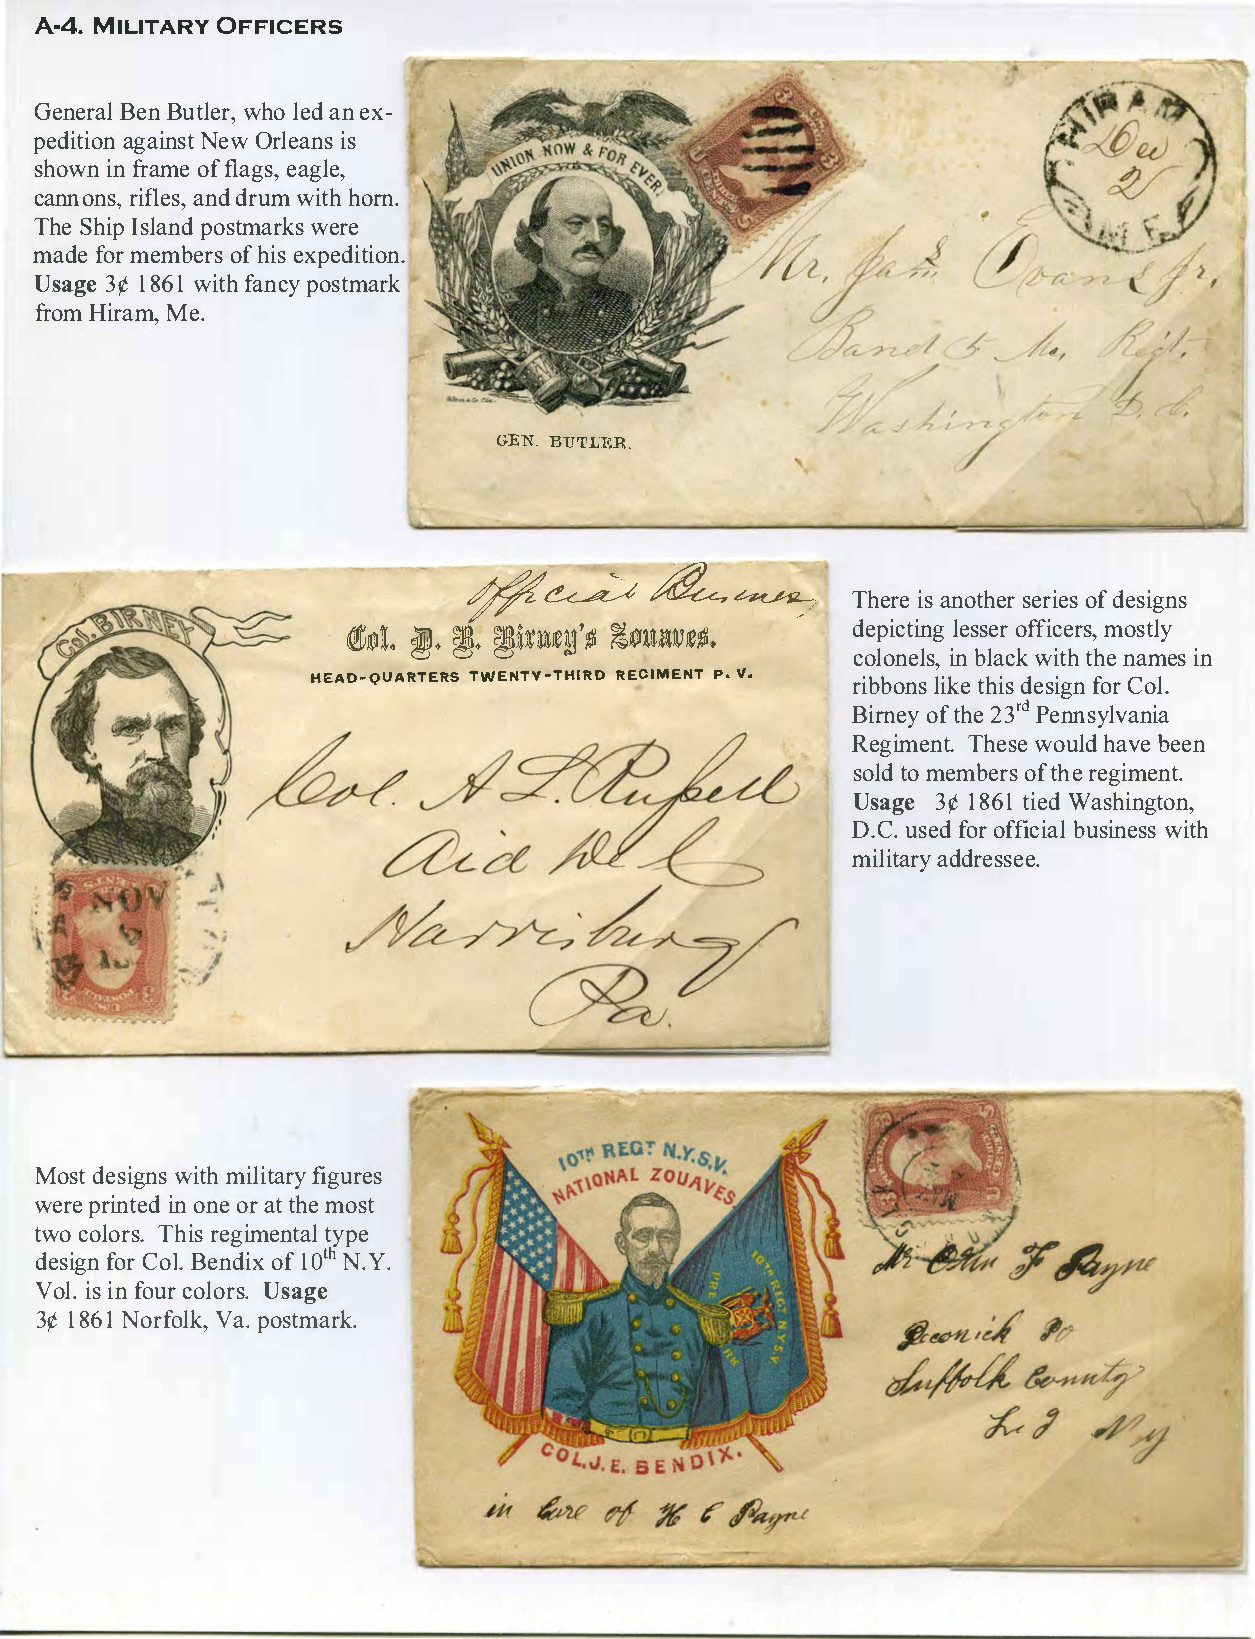 A-4. MILITARY OFFICERS
General Ben Butler, who led an ex-
pedition against New Orleans is
shown in frame of flags, eagle,
cannons, rifles, and drum with horn.
The Ship Island postmarks were
made for members of his expedition.
Usage 3¢ 1861 with fancy postmark
from Hiram, Me.
UNION NOW & FOR EVER.
GEN. BUTLER.
HIRAM
Dec
2
ME.
Mr. Jas. Evans Jr.
Band 5 Me. Regt.
Washington D.C.
COL. BIRNEY
Official Business
Col. D. B. Birney's Zouaves.
HEAD-QUARTERS TWENTY-THIRD REGIMENT P. V.
Col. A L Russell
Aid De C
Harrisburg
Pa.
NOV
6
There is another series of designs
depicting lesser officers, mostly
colonels, in black with the names in
ribbons like this design for Col.
Birney of the 23rd Pennsylvania
Regiment. These would have been
sold to members of the regiment.
Usage 3¢ 1861 tied Washington,
D.C. used for official business with
military addressee.
Most designs with military figures
were printed in one or at the most
two colors. This regimental type
design for Col. Bendix of 10th N.Y.
Vol. is in four colors. Usage
3¢ 1861 Norfolk, Va. postmark.
10TH REGT N.Y.S.V.
NATIONAL ZOUAVES
10TH REGT N.Y.S.V.
COL. J. E. BENDIX.
Mr F Payne
Peconick Po
Suffolk County
N y
in Care of H C Payne